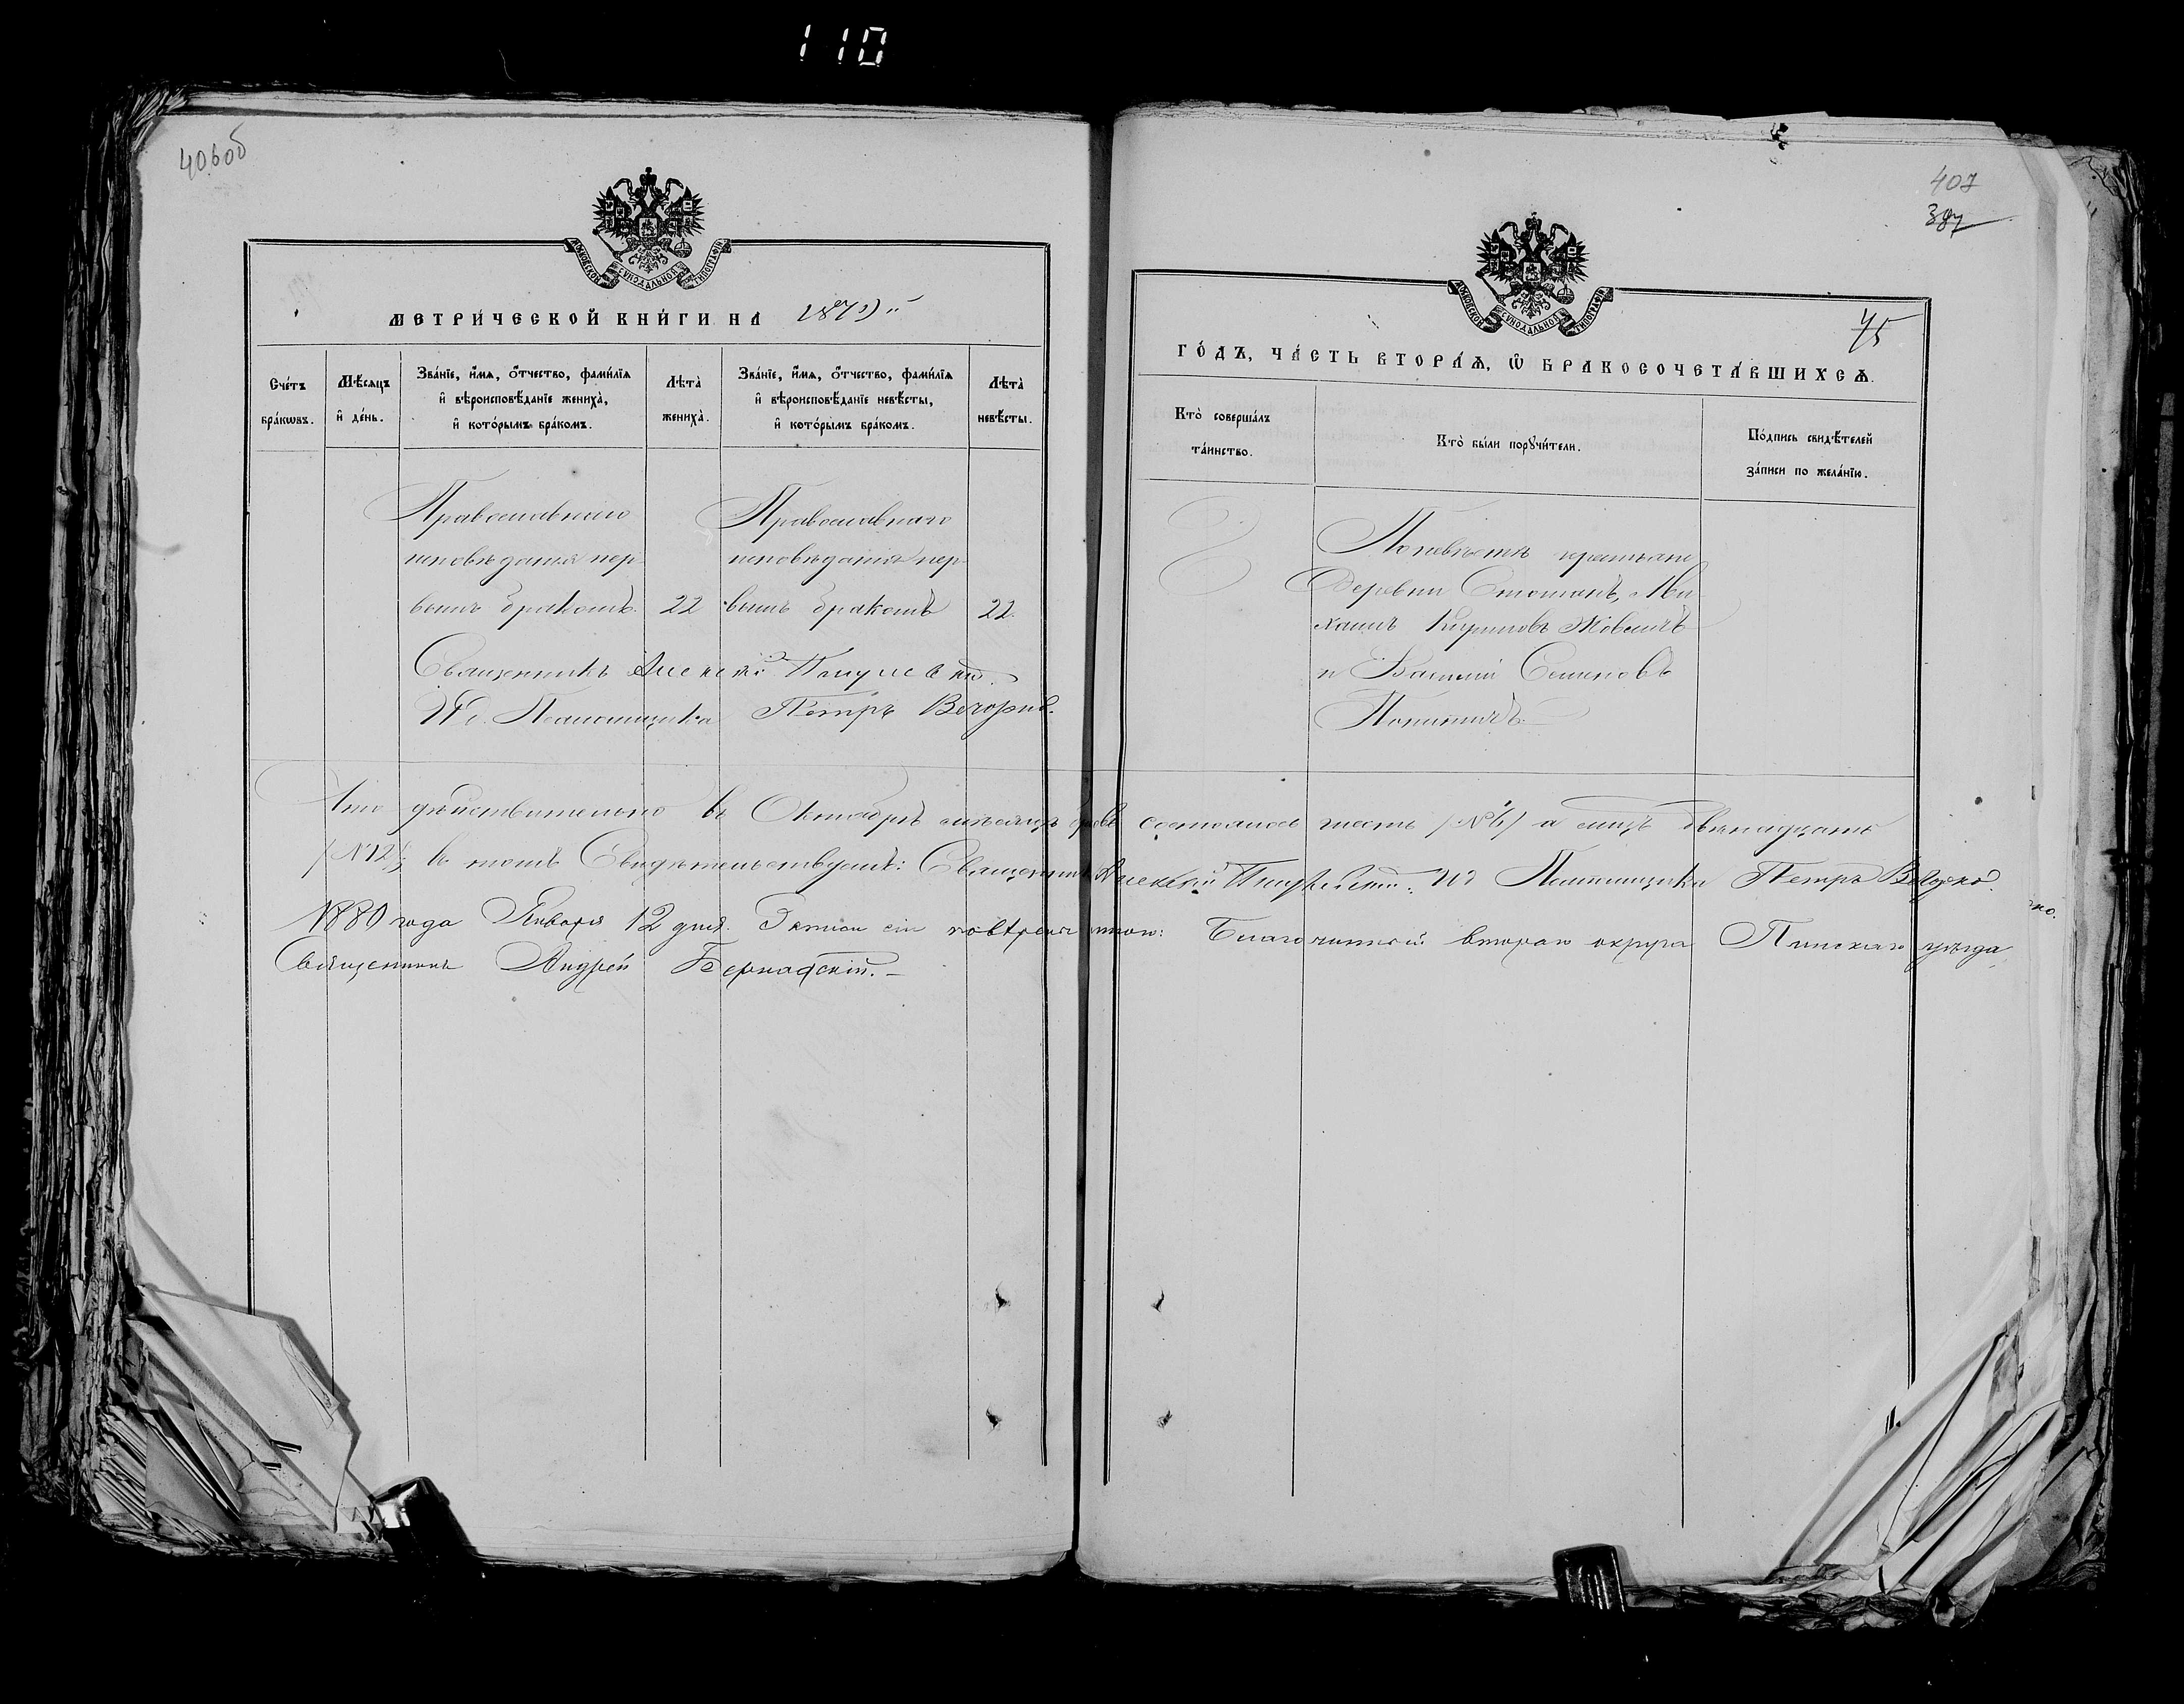 110
406об
МОСКОВСКОЙ СУНОДАЛЬНОЙ ТИПОГРАФІИ
МЕТРИ́ЧЕСКОЙ КНИ́ГИ НА 1879 й
Сче́тъ бра́кѡвъ.
Мѣ́сяцъ и҆ де́нь.
Зва́нїе, и҆́мѧ, ѻ҆́тчество, фами́лїѧ
и҆ вѣроисповѣ́данїе жениха̀,
и҆ кото́рымъ бра́комъ.
Лѣта̀ жениха̀.
Зва́нїе, и҆́мѧ, ѻ҆́тчество, фами́лїѧ
и҆ вѣроисповѣ́данїе невѣ́сты,
и҆ кото́рымъ бра́комъ.
Лѣта̀ невѣ́сты.
Православнаго
исповѣданія пер-
вымъ бракомъ. 22
Православнаго
исповѣданія пер-
вымъ бракомъ 22.
Священникъ Алексѣй
И. д. Псаломщика Петръ
407
387
МОСКОВСКОЙ СУНОДАЛЬНОЙ ТИПОГРАФІИ
45
ГО́ДЪ, ЧА́СТЬ ВТОРА́Ѧ, Ѡ҆ БРАКОСОЧЕТА́ВШИХСѦ.
Кто̀ соверша́лъ
та́инство.
Кто̀ бы́ли порꙋчи́тели.
По́дпись свидѣ́телей
за́писи по жела́нїю.
По невѣстѣ крестьяне
Деревни Стошанъ, Ми-
хаилъ Кириловъ
и Василій Семеновъ
Что дѣйствительно въ Октябрѣ мѣсяцѣ браковъ состоялось шесть /№ 6/ а лицъ двѣнадцать
/№ 12/, въ томъ Свидѣтельствуемъ: Священникъ Алексѣй И. д. Псаломщика Петръ
1880 года Января 12 дня. Записи сіи Благочинный втораго округа Пинскаго уѣзда
Священникъ Андрей Бернадскій.